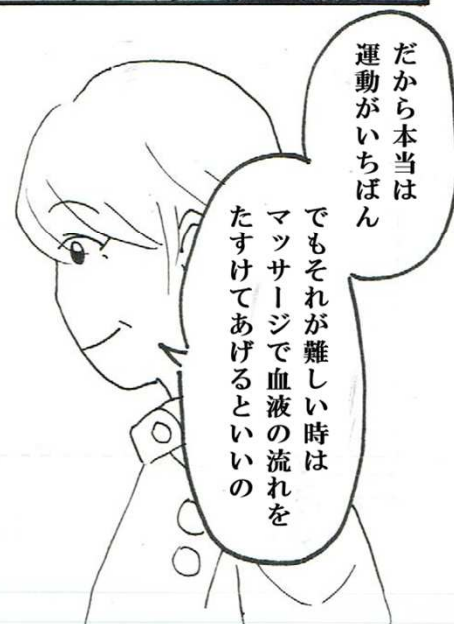 だから本当は
運動がいちばん
でもそれが難しい時は
マッサージで血液の流れを
たすけてあげるといいの